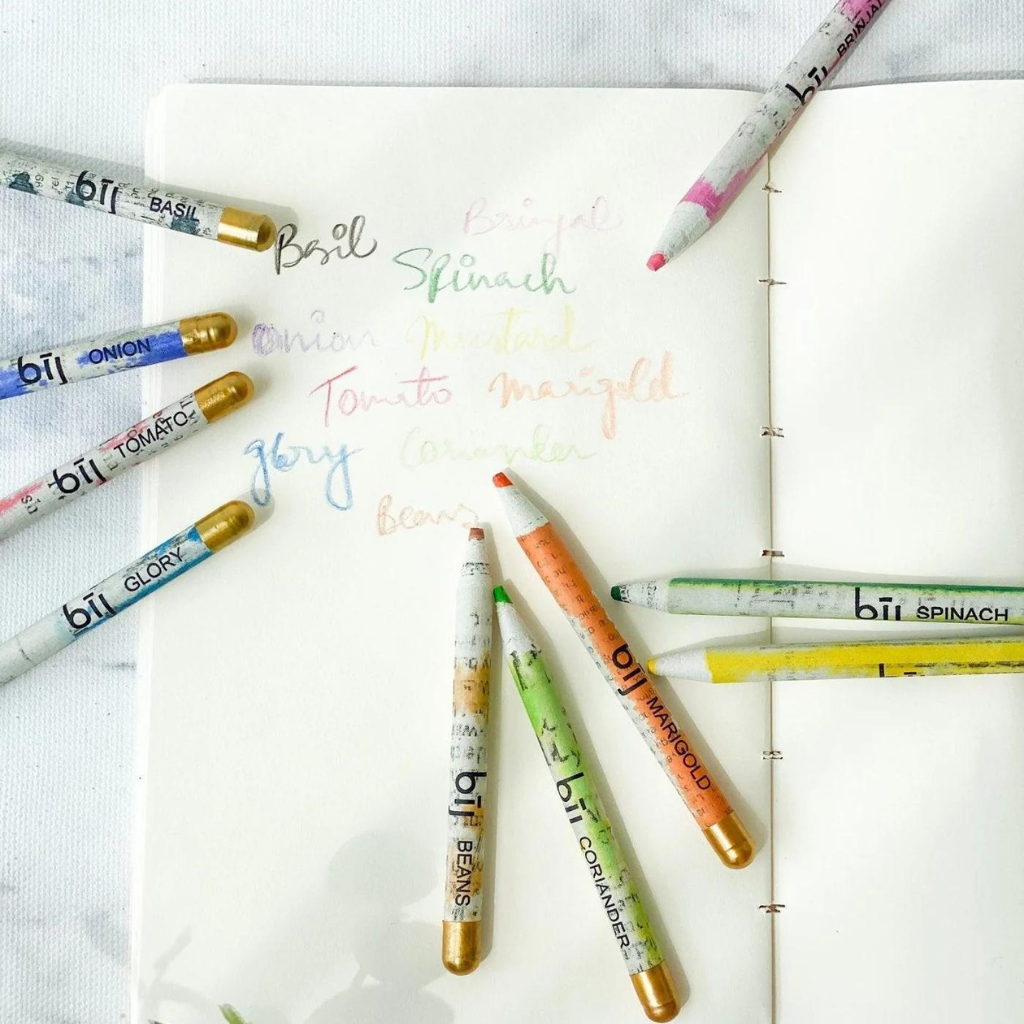 bīj BRINJAL
bīj BASIL
Basil Brinjal
Spinach
bīj ONION
Onion Mustard
bīj TOMATO
Tomato Marigold
glory Coriander
Beans
bīj GLORY
bīj SPINACH
bīj MARIGOLD
bīj BEANS
bīj CORIANDER